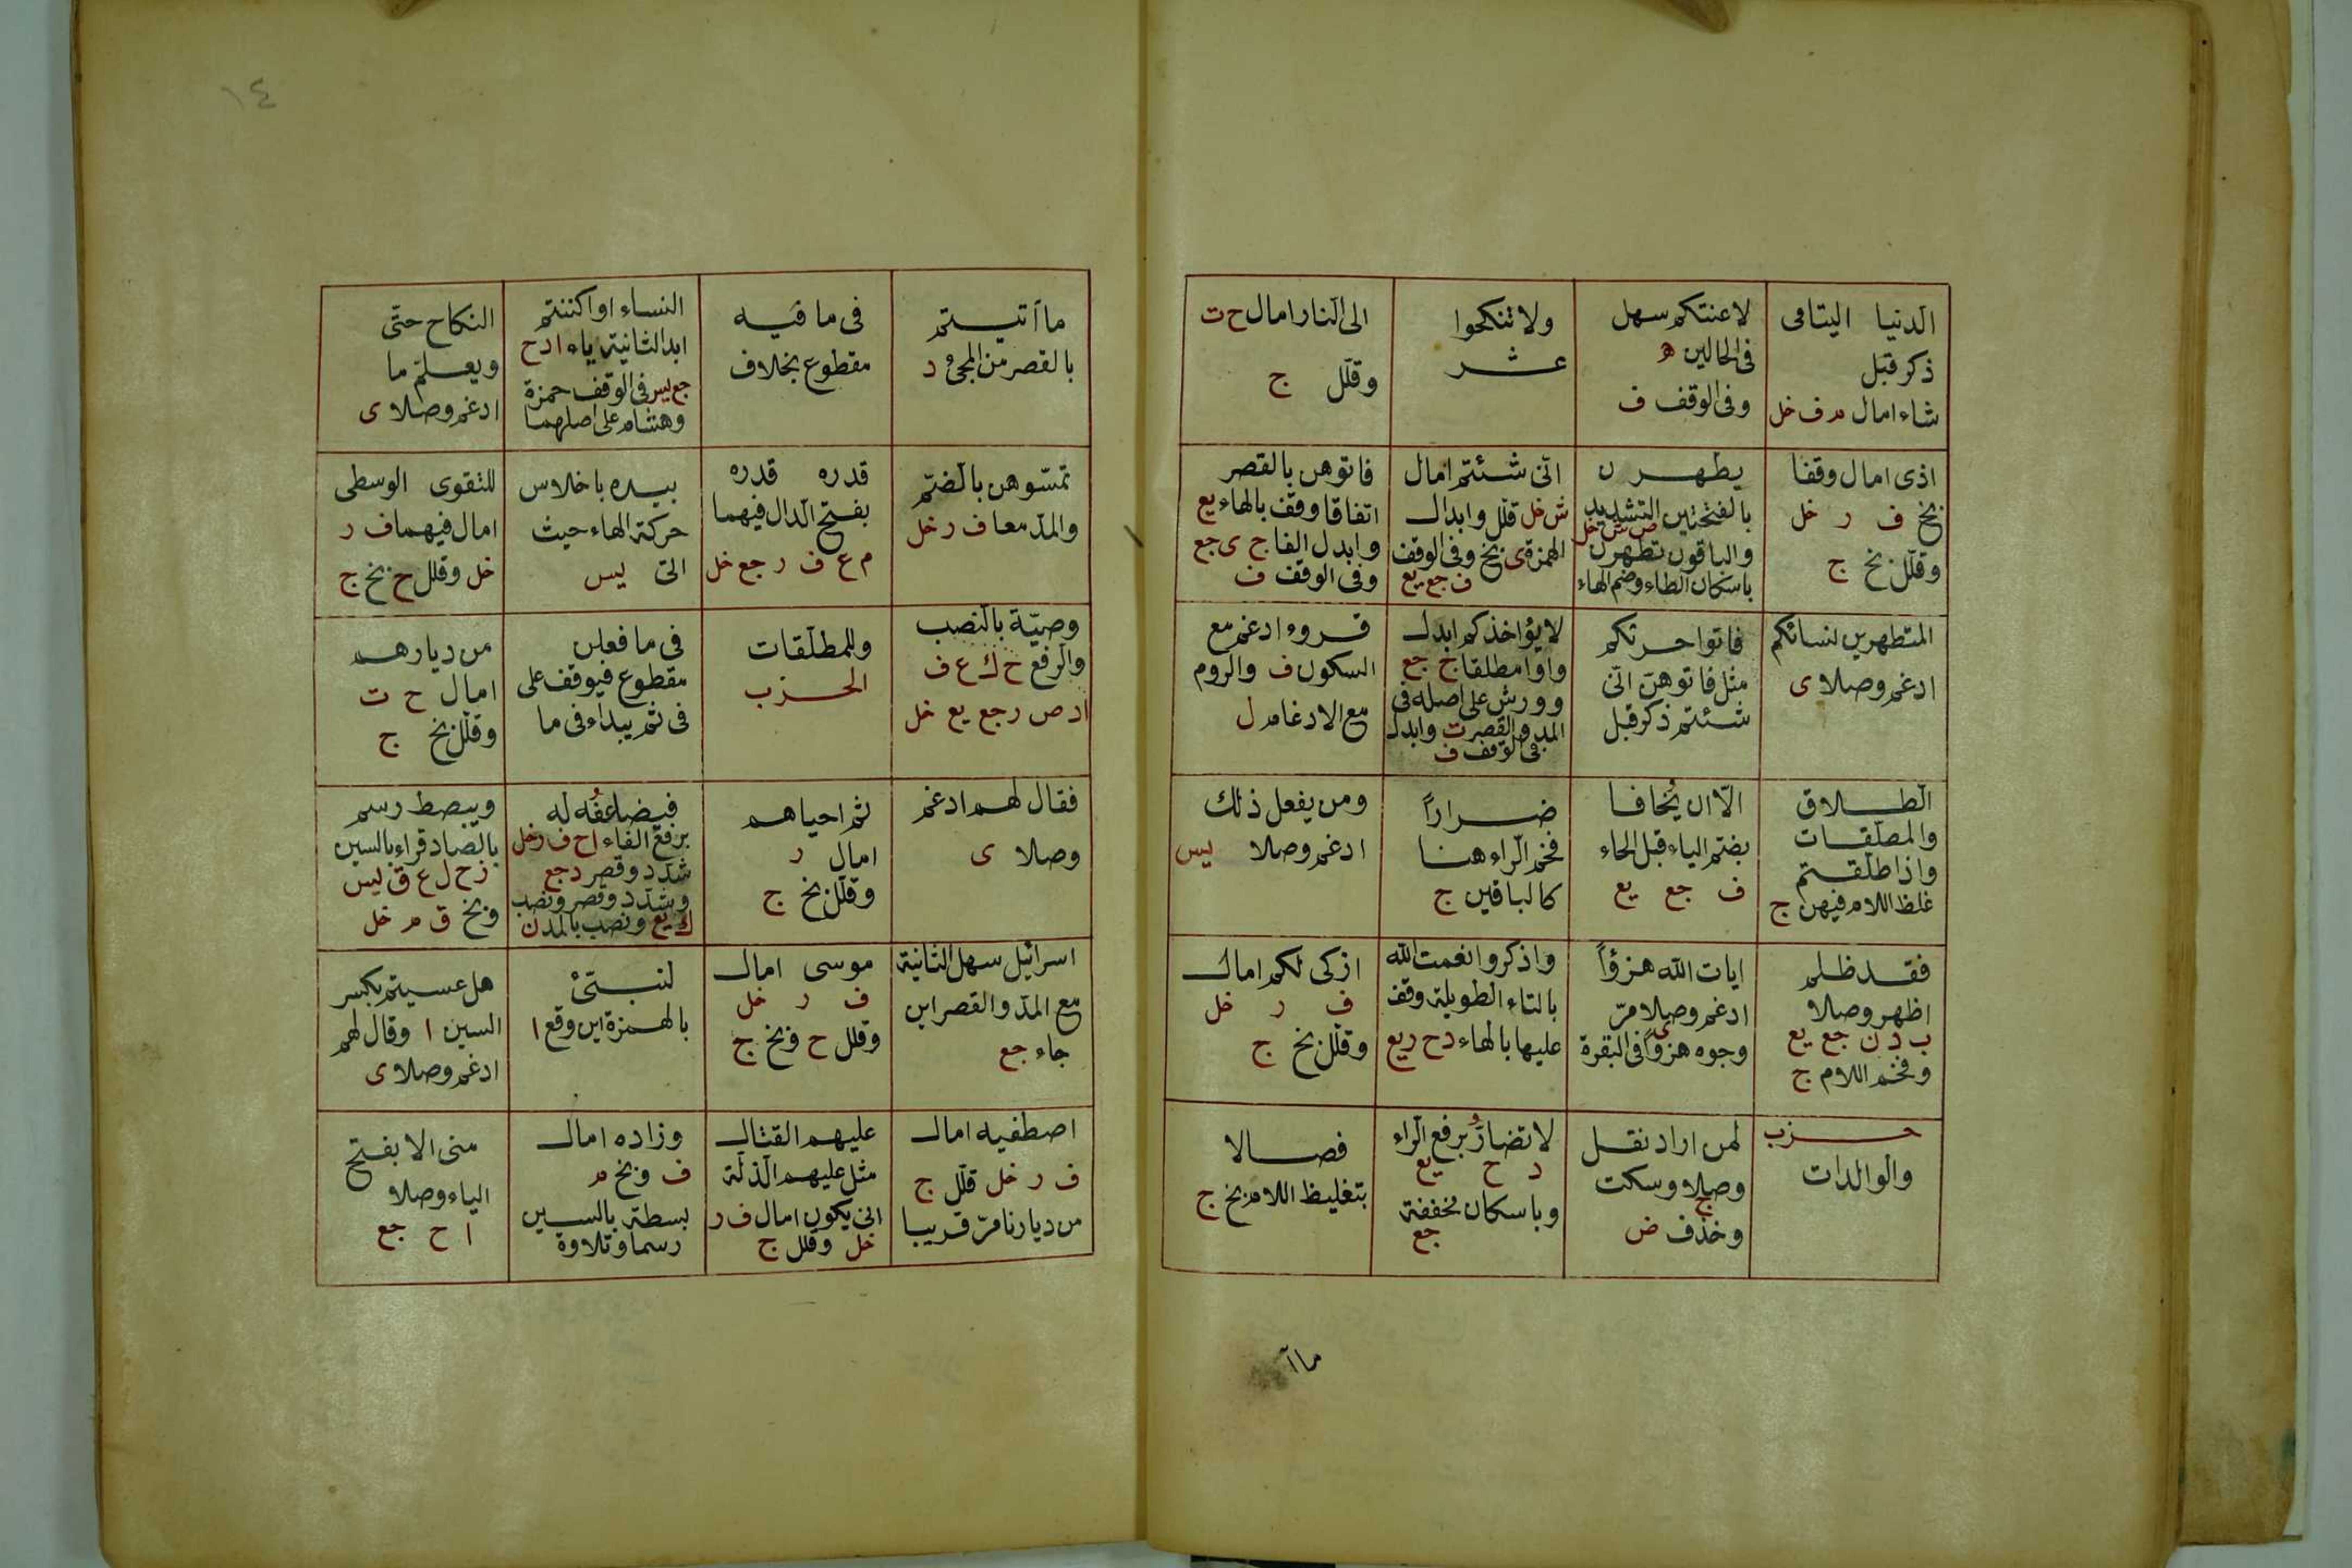 الدنيا اليتامى
ذكر قبل
شاء امال م ف خل
لاعنتكم سهل
فى الحالين ه
وفى الوقف ف
ولا تنكحوا
عشر
الى النار امال ح ت
وقلل ج
اذى امال وقفا
بخ ف ر خل
وقلل بخ ج
يطهرن
بالفتحتين التشديد
ص ش خل
والباقون تطهرن
باسكان الطاء وضم الهاء
انى شئتم امال
ش خل قلل وابدال
الهمزة ى بخ وفى الوقف
ف جع يع
فاتوهن بالقصر
اتفاقا وقف بالهاء يع
وابدل الفا ج ى جع
وفى الوقف ف
المتطهرين لنسائكم
ادغم وصلا ى
فاتوا حرثكم
مثل فاتوهن انى
شئتم ذكر قبل
لا يؤاخذكم ابدل
واوا مطلقا ج جع
وورش على اصله فى
المد والقصر ت وابدل
فى الوقف ف
قروء ادغم مع
السكون ف والروم
مع الادغام ل
الطلاق
والمطلقات
واذا طلقتم
غلظ اللام فيهن ج
الا ان يخافا
بضم الياء قبل الحاء
ف جع يع
ضرارا
فخم الراء هنا
كالباقين ج
ومن يفعل ذلك
ادغم وصلا ليس
فقد ظلم
اظهر وصلا
ب د ن جع يع
وفخم اللام ج
ايات الله هزؤا
ادغم وصلا مر
ى
وجوه هزوا فى البقرة
واذكروا نعمت الله
بالتاء الطويلة وقف
عليها بالهاء د ح ر يع
ازكى لكم امال
ف ر خل
وقلل بخ ج
حزب
والوالدات
لمن اراد نقل
وصلا وسكت
ج
وخذف ض
لا تضار برفع الراء
د ح يع
وباسكان مخففة
جع
فصالا
بتغليظ اللام بخ ج
ماآ
١٤
ما آتيتم
بالقصر من المجئ د
فى ما فيه
مقطوع بخلاف
النساء او اكننتم
ابدالثانية ياء ا د ح
جع ليس فى الوقف حمزة
وهشام على اصلهما
النكاح حتى
ويعلم ما
ادغم وصلا ى
تمسوهن بالضم
والمد معا ف ر خل
قدره قدره
بفتح الدال فيهما
م ع ف ر جع خل
بيده باخلاس
حركة الهاء حيث
اتى ليس
للتقوى الوسطى
امال فيهما ف ر
خل وقلل ح بخ ج
وصية بالنصب
والرفع ح ك ع ف
ا د ص ر جع يع خل
وللمطلقات
الحزب
فى ما فعلن
مقطوع فيوقف على
فى ثم يبداء فى ما
من ديارهم
امال ح ت
وقلل بخ ج
فقال لهم ادغم
وصلا ى
ثم احياهم
امال ر
وقلل بخ ج
فيضاعفه له
برفع الفاء ا ح ف ر خل
شدد وقصر د جع
وشدد وقصر ونصب
ك يع ونصب بالمد ن
ويبصط رسم
بالصاد قراء بالسين
ز ح ل ع ق ليس
وبخ ق م خل
اسرائيل سهل الثانية
مع المد والقصر اين
جاء جع
موسى امال
ف ر خل
وقلل ح وبخ ج
لنبئ
بالهمزة اين وقع ا
هل عسيتم بكسر
السين ا وقال لهم
ادغم وصلا ى
اصطفيه امال
ف ر خل قلل ج
من ديارنا مر قريبا
عليهم القتال
مثل عليهم الذلة
انى يكون امال ف ر
خل وقلل ج
وزاده امال
ف وبخ م
بسطة بالسين
رسما وتلاوة
منى الا بفتح
الياء وصلا
ا ح جع